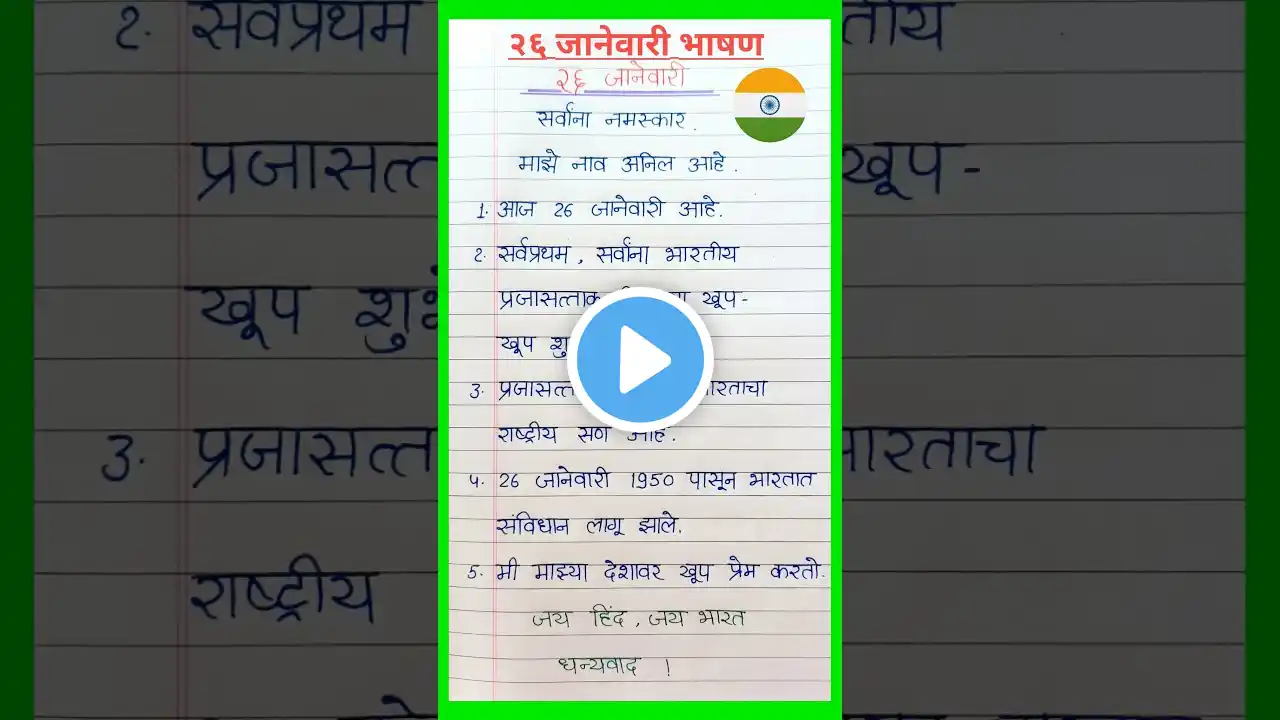 २६ जानेवारी भाषण
२६ जानेवारी
सर्वांना नमस्कार.
माझे नाव अनिल आहे.
1. आज 26 जानेवारी आहे.
२. सर्वप्रथम, सर्वांना भारतीय
प्रजासत्ताक खूप-
खूप
3. प्रजासत्ता भारताचा
राष्ट्रीय सण आहे.
४. 26 जानेवारी 1950 पासून भारतात
संविधान लागू झाले.
5. मी माझ्या देशावर खूप प्रेम करतो.
जय हिंद, जय भारत
धन्यवाद !